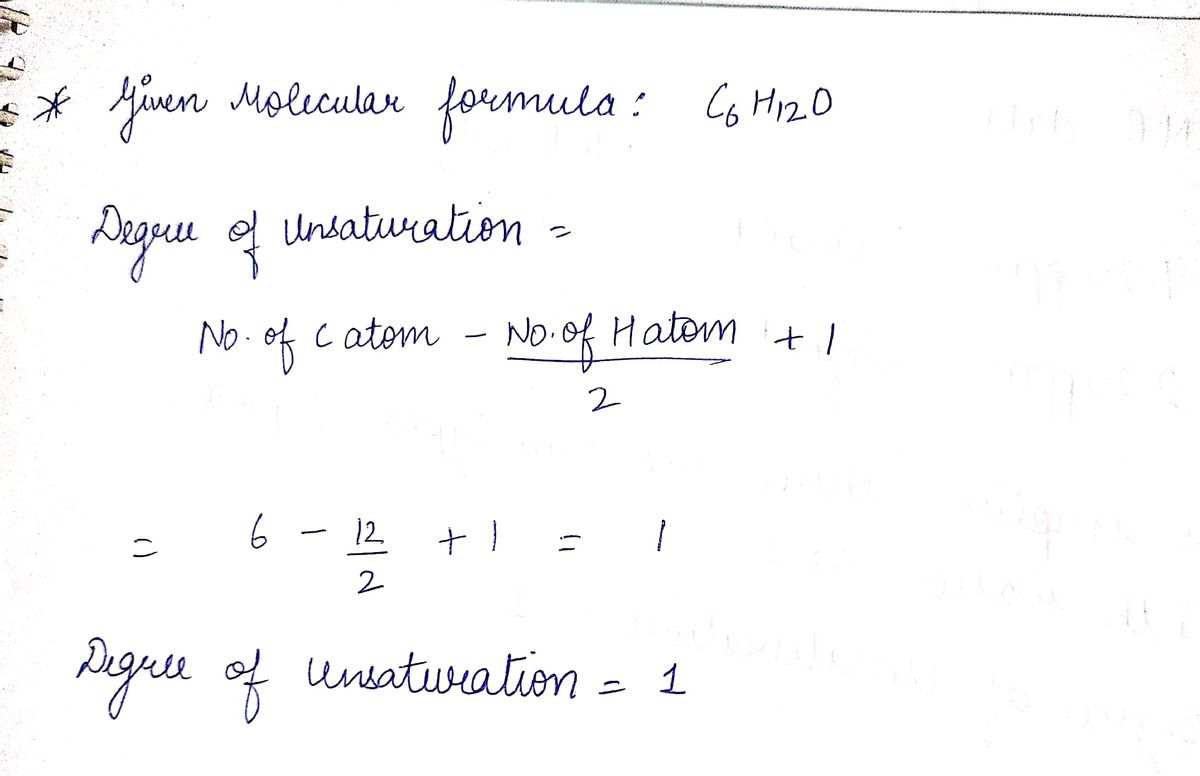 * Given Molecular formula: C6 H12O
Degree of Unsaturation =
No. of C atom - No. of H atom + 1
2
= 6 - 12 + 1 = 1
2
Degree of unsaturation = 1